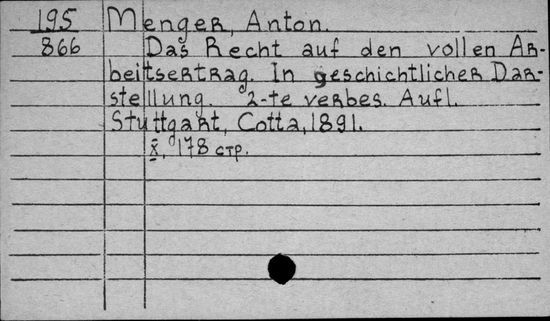 195 Menger, Anton.
866 Das Recht auf den vollen Ar-
beitsertrag. In geschichtlicher Dar-
stellung. 2-te verbes. Aufl.
Stuttgart, Cotta, 1891.
X, 178 стр.